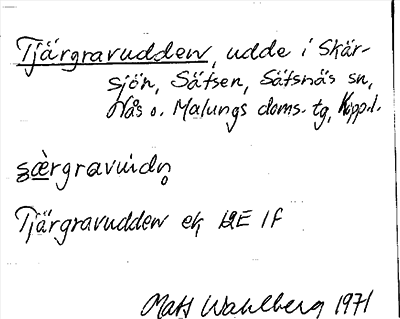 Tjärgravudden, udde i Skär-
sjön, Sätsen, Säfsnäs sn,
Nås o. Malungs doms. tg, Kopp.l.
Tjärgravudden ek 12E 1f
Mats Wahlberg 1971